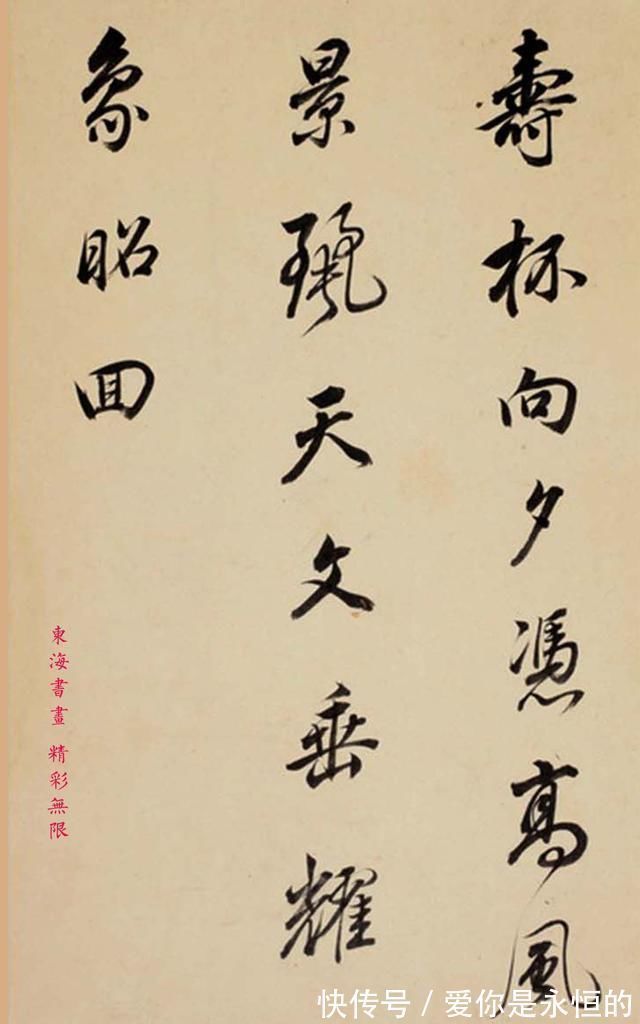 壽杯向夕憑高風
景天文垂耀
象昭回
東海書畫 精彩無限
快传号 / 爱你是永恒的